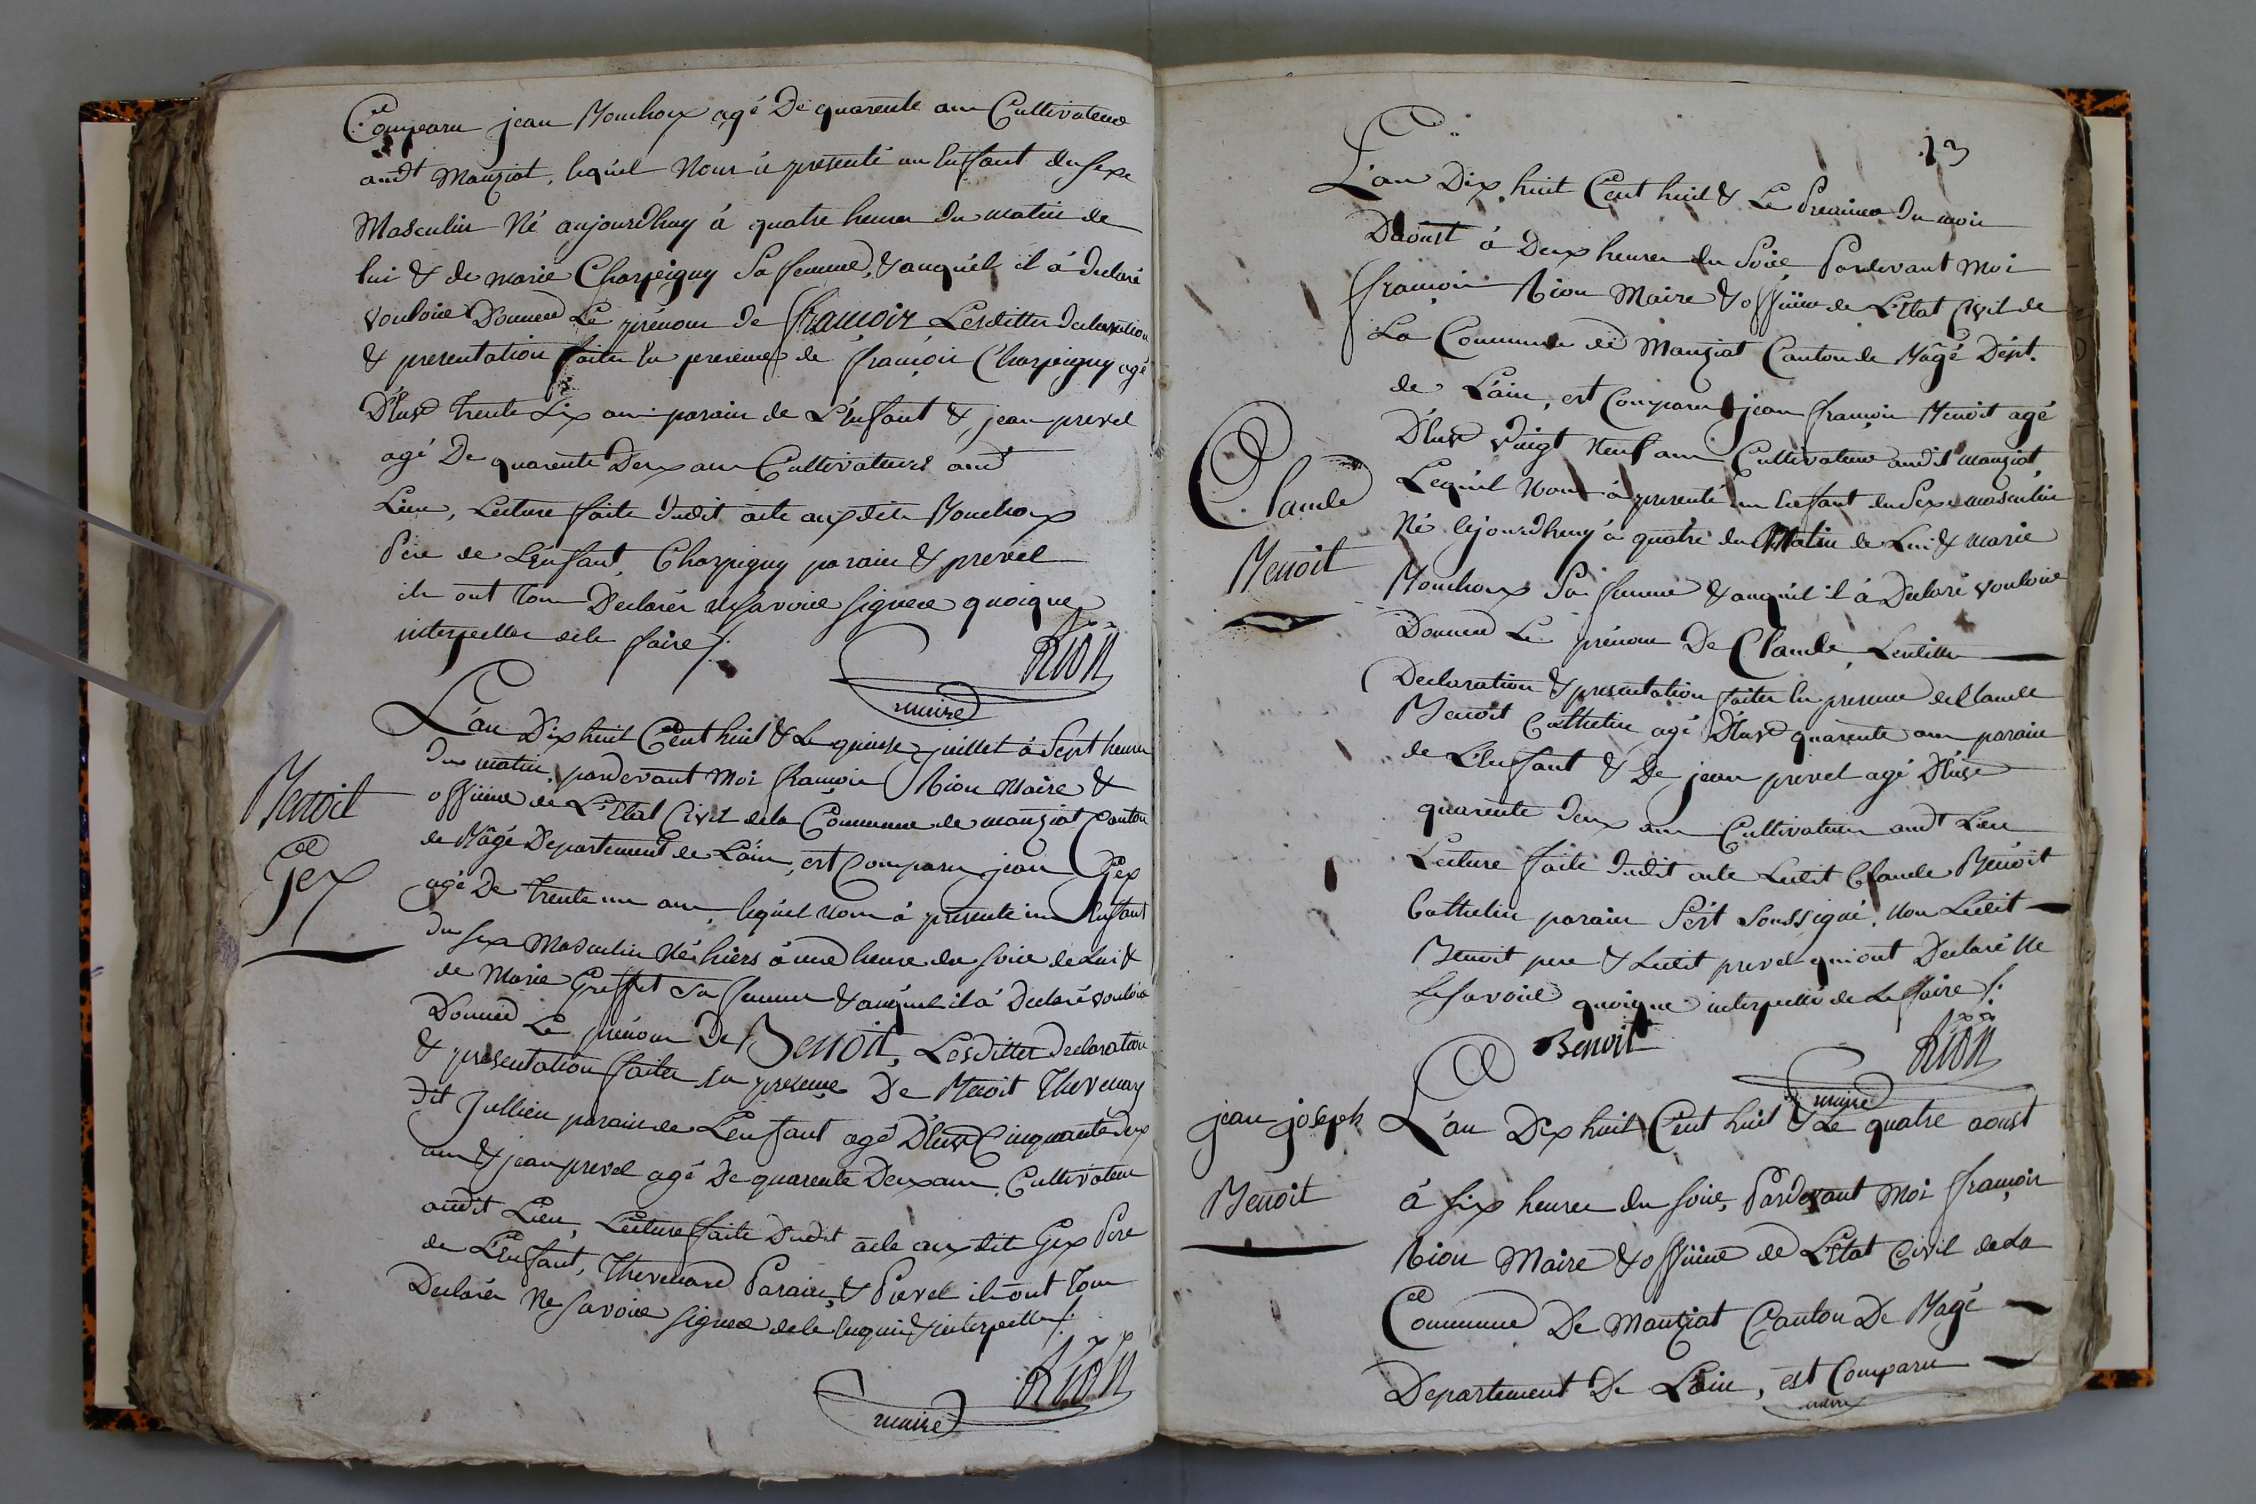 Comparu jean Mouchoux agé De quarente ans Cultivateur
audt Manziat, lequel Nous à présenté un Enfant du sexe
Masculin Né aujourdhuy à quatre heures du matin de
lui & de marie Charpigny Sa femme, & auquel il à declaré
vouloir Donner Le prénom de françois Lesdittes declaration
& presentation faites En presence de françois Charpigny agé
D'Eusd trente Six ans parain de L'Enfant & jean prevel
agé De quarente Deux ans Cultivateurs audt
Lieu, Lecture faite dudit acte auxdits Mouchoux
Pere de L'enfant, Charpigny parain & prevel
ils ont tous Declarés ne savoir signer quoique
interpellés de le faire /.
Rion
maire
Benoit
Gex
L'an Dix huit Cent huit & Le quinze juillet à Sept heures
du matin, pardevant Moi françois Rion Maire &
officier de L'Etat Civil de la Commune de manziat Canton
de Bâgé Departement de L'ain, est Comparu jean Gex
agé De trente un ans, lequel nous à presenté un Enfant
du sexe Masculin Né hiers à une heure du soir de Lui &
de Marie Greffet Sa femme & auquel il à Declaré vouloir
Donner Le prénom De Benoit, Lesdittes declaration
& presentation faites En presence De Benoit Thevenard
dit Jullien parain de L'enfant agé D'Eusd Cinquante deux
ans & jean prevel agé De quarente Deux ans, Cultivateurs
audit Lieu, Lecture faite Dudit acte auxdits Gex Pere
de L'Enfant, Thevenard Parain, & Prevel ils ont tous
Declarés Ne savoir signer de ce Enquis & interpellés /.
Rion
maire
13
L'an Dix huit Cent huit & Le Premier du mois
D'aoust à Deux heures du Soir, Pardevant Moi
françois Rion Maire & officier de L'Etat Civil de
La Commune de Manziat Canton de Bâgé Dépt.
de L'ain, est Comparu jean françois Benoit agé
D'Eusd vingt Neuf ans Cultivateur audit manziat
Claude
Benoit
Lequel Nous à presenté un Enfant du Sexe masculin
Né Cejourdhuy à quatre du Matin de Lui & marie
Mouchoux Sa femme & auquel il à Declaré vouloir
Donner Le prénom De Claude, Lesdittes
Declaration & presentation faites En presence de Claude
Benoit Cathelin agé D'Eusd quarente ans parain
de L'Enfant & De jean prevel agé D'Eusd
quarente deux ans Cultivateurs audt Lieu
Lecture faite dudit acte Ledit Claude Benoit
Cathelin parain S'est Soussigné, Non Ledit
Benoit pere & Ledit prevel qui ont Declaré Ne
Le savoir quoique interpellés de Le faire /.
Benoit
Rion
maire
jean joseph
Benoit
L'an Dix huit Cent huit & Le quatre aoust
à Six heures du soir, Pardevant Moi françois
Rion Maire & officier de L'Etat Civil de La
Commune De Manziat Canton De Bâgé
Departement De L'ain, est Comparu